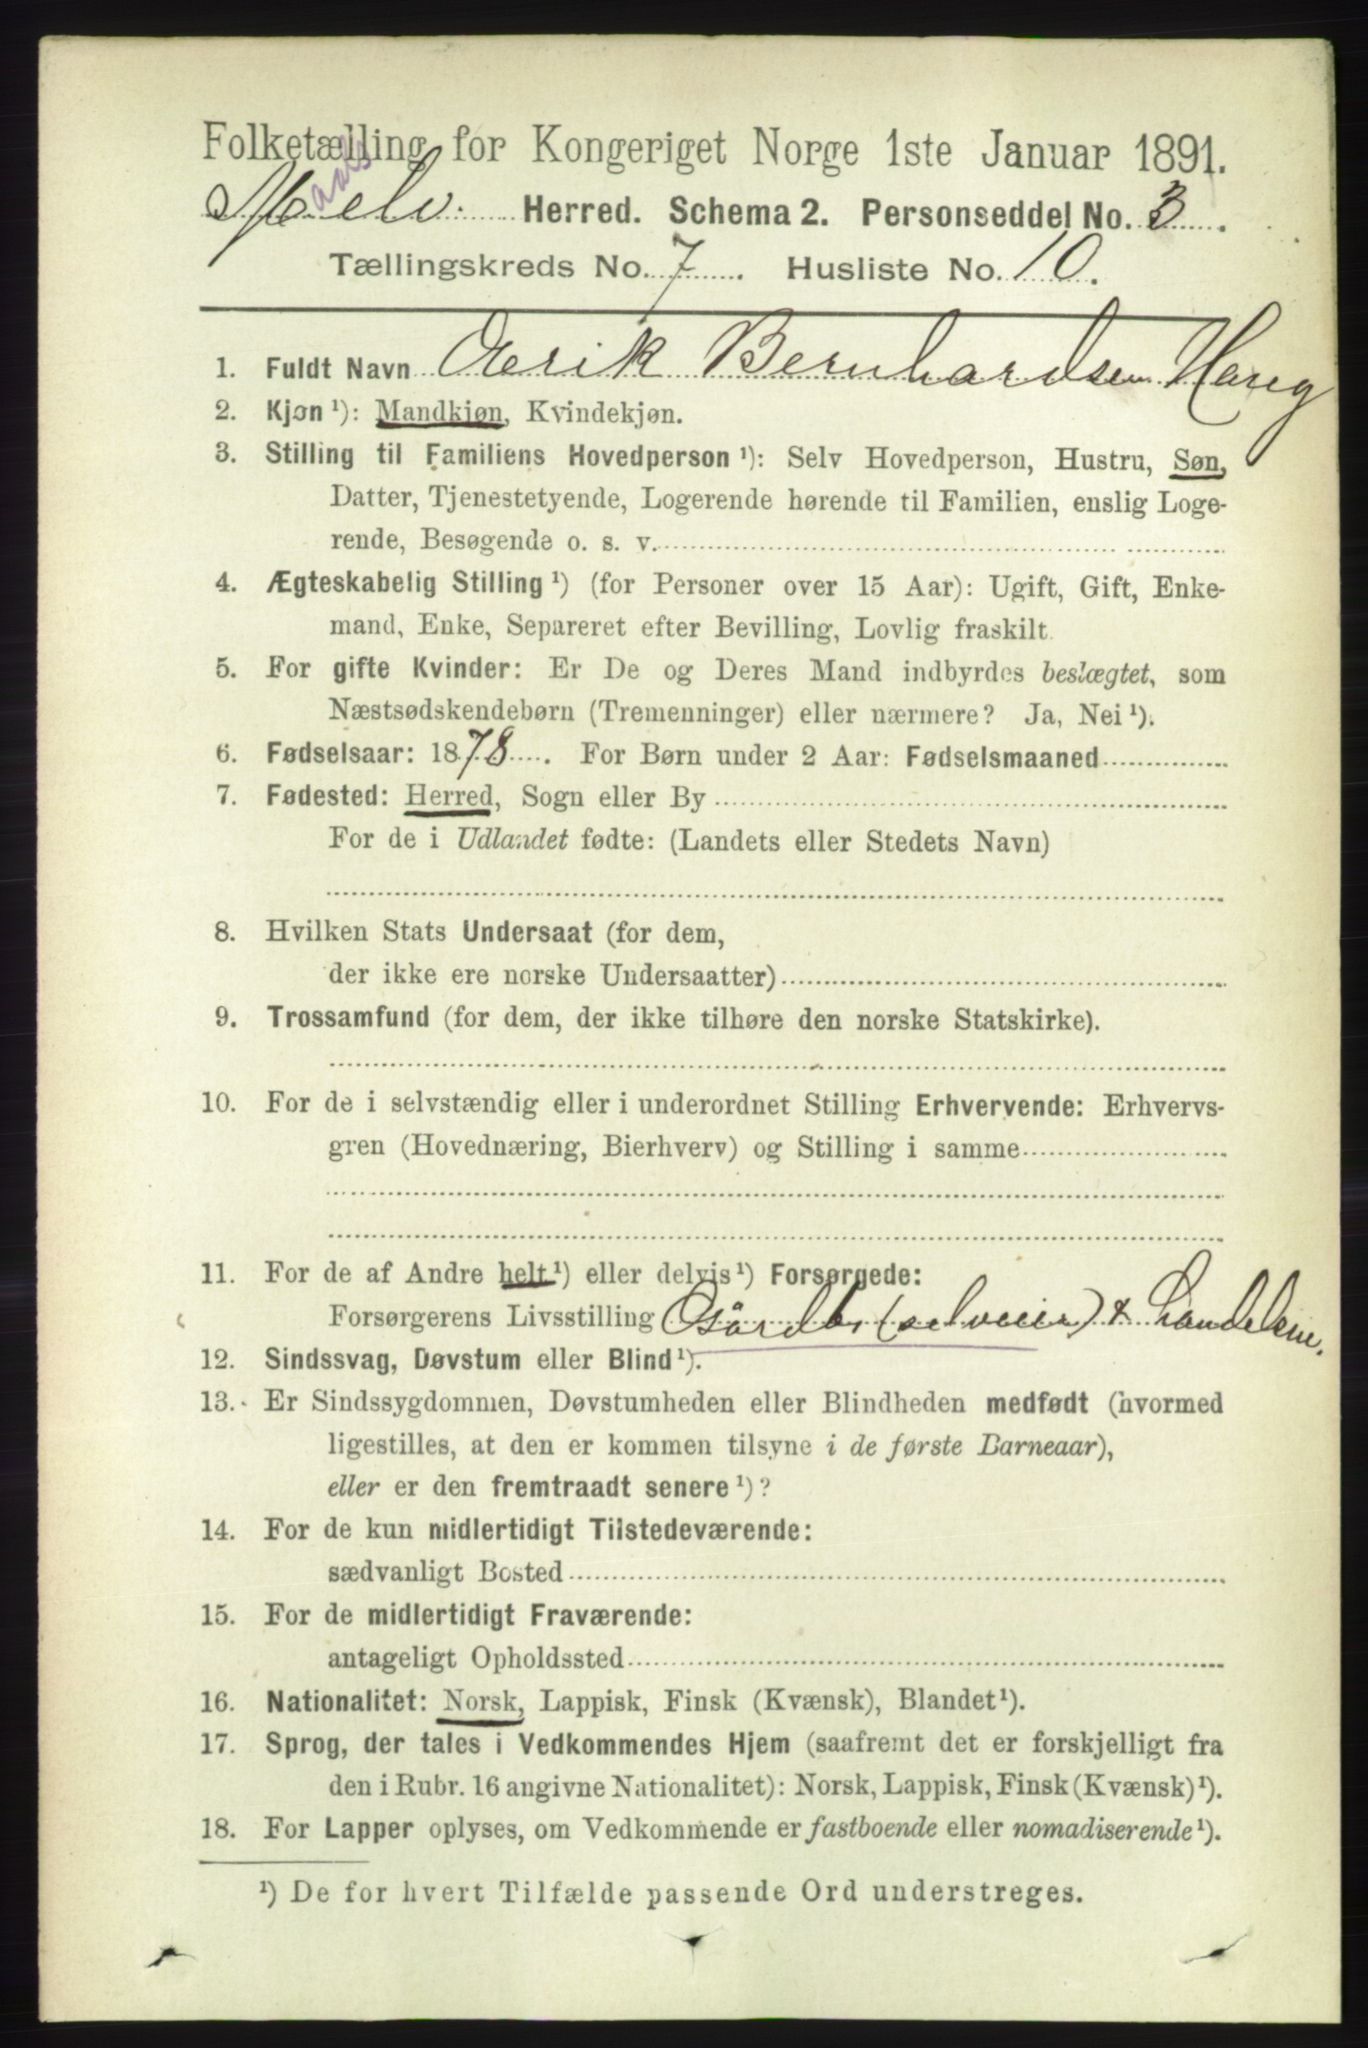 Folketælling for Kongeriget Norge 1ste Januar 1891.
Melv. Herred. Schema 2. Personseddel No. 3.
Tællingskreds No. 7. Husliste No. 10.
1. Fuldt Navn Aerik Bernhardsen Haug
2. Kjøn ¹): Mandkjøn, Kvindekjøn.
3. Stilling til Familiens Hovedperson ¹): Selv Hovedperson, Hustru, Søn,
Datter, Tjenestetyende, Logerende hørende til Familien, enslig Loge-
rende, Besøgende o. s. v.
4. Ægteskabelig Stilling ¹) (for Personer over 15 Aar): Ugift, Gift, Enke-
mand, Enke, Separeret efter Bevilling, Lovlig fraskilt.
5. For gifte Kvinder: Er De og Deres Mand indbyrdes beslægtet, som
Næstsødskendebørn (Tremenninger) eller nærmere? Ja, Nei ¹).
6. Fødselsaar: 1878. For Børn under 2 Aar: Fødselsmaaned
7. Fødested: Herred, Sogn eller By
For de i Udlandet fødte: (Landets eller Stedets Navn)
8. Hvilken Stats Undersaat (for dem,
der ikke ere norske Undersaatter)
9. Trossamfund (for dem, der ikke tilhøre den norske Statskirke).
10. For de i selvstændig eller i underordnet Stilling Erhvervende: Erhvervs-
gren (Hovednæring, Bierhverv) og Stilling i samme
11. For de af Andre helt ¹) eller delvis ¹) Forsørgede:
Forsørgerens Livsstilling (selveier) +
12. Sindssvag, Døvstum eller Blind ¹).
13. Er Sindssygdommen, Døvstumheden eller Blindheden medfødt (hvormed
ligestilles, at den er kommen tilsyne i de første Barneaar),
eller er den fremtraadt senere ¹)?
14. For de kun midlertidigt Tilstedeværende:
sædvanligt Bosted
15. For de midlertidigt Fraværende:
antageligt Opholdssted
16. Nationalitet: Norsk, Lappisk, Finsk (Kvænsk), Blandet ¹).
17. Sprog, der tales i Vedkommendes Hjem (saafremt det er forskjelligt fra
den i Rubr. 16 angivne Nationalitet): Norsk, Lappisk, Finsk (Kvænsk) ¹).
18. For Lapper oplyses, om Vedkommende er fastboende eller nomadiserende ¹).
¹) De for hvert Tilfælde passende Ord understreges.